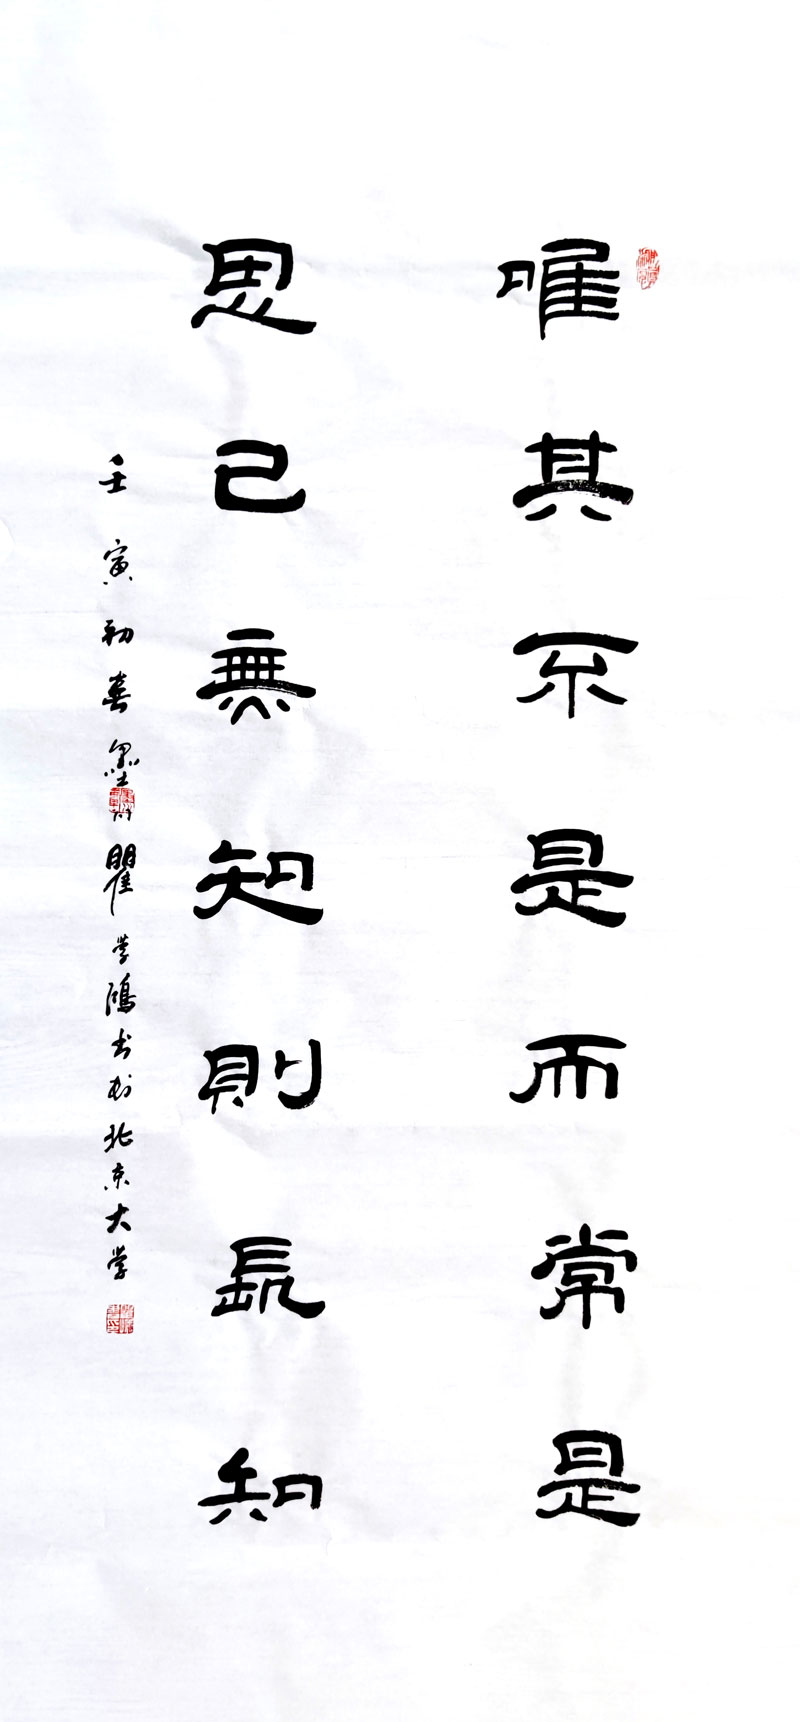 唯其不是而常是
思己無知則長知
壬寅初春墨 瞿学鴻书於北京大学